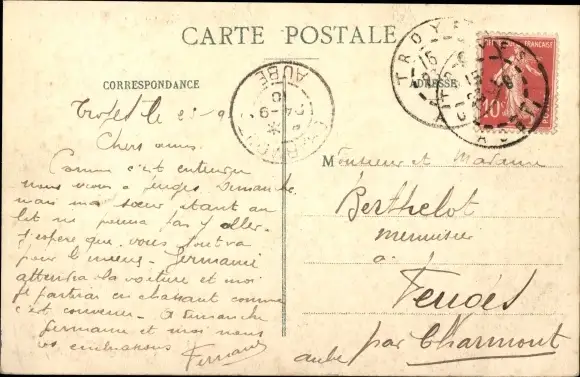 CARTE POSTALE
CORRESPONDANCE
ADRESSE
TROYES
AUBE
10
le 23-9
Chers amis.
Comme c'est entendu
nous irons à Feuges Dimanche
mais ma sœur étant au
lit ne pourra pas y aller.
J'espère que vous tout va
pour le mieux. Germaine
attendra la voiture et moi
je partirai en chassant comme
c'est convenu. A Dimanche
Germaine et moi nous
vos embrassons
Fernand
Monsieur et Madame
Berthelot
menuisier
à
Feuges
par Charmont
Aube